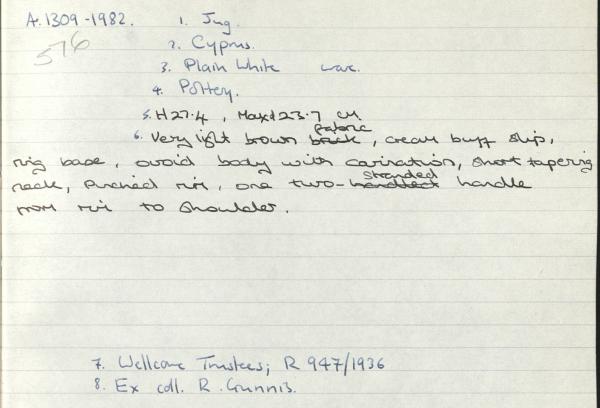 A.1309-1982. 1. Jug.
576
2. Cyprus.
3. Plain White ware.
4. Pottery.
5. H 27.4, Max d 23.7 cm
fabric
6. Very light brown brick, cream buff slip,
ring base, ovoid body with carination, short tapering
stranded
neck, pinched rim, one two-handled handle
from rim to shoulder.
7. Wellcome Trustees; R 947/1936
8. Ex coll. R. Gunnis.